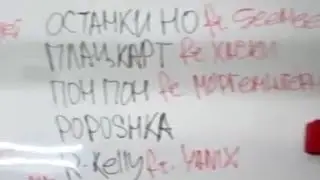 ОСТАНКИНО ft. SEEMEE
ПЛАЦКАРТ ft.
ПОМ ПОМ ft. МОРГЕНШТЕРН
POPOSHKA
R-Kelly ft. YANIX